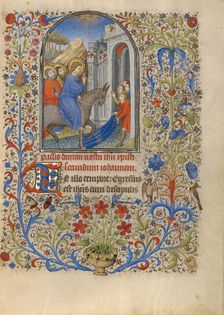 Passio domini nostri ihu xpisti
secundum iohannem.
In illo tempore: Egressus
est ihesus cum discipulis